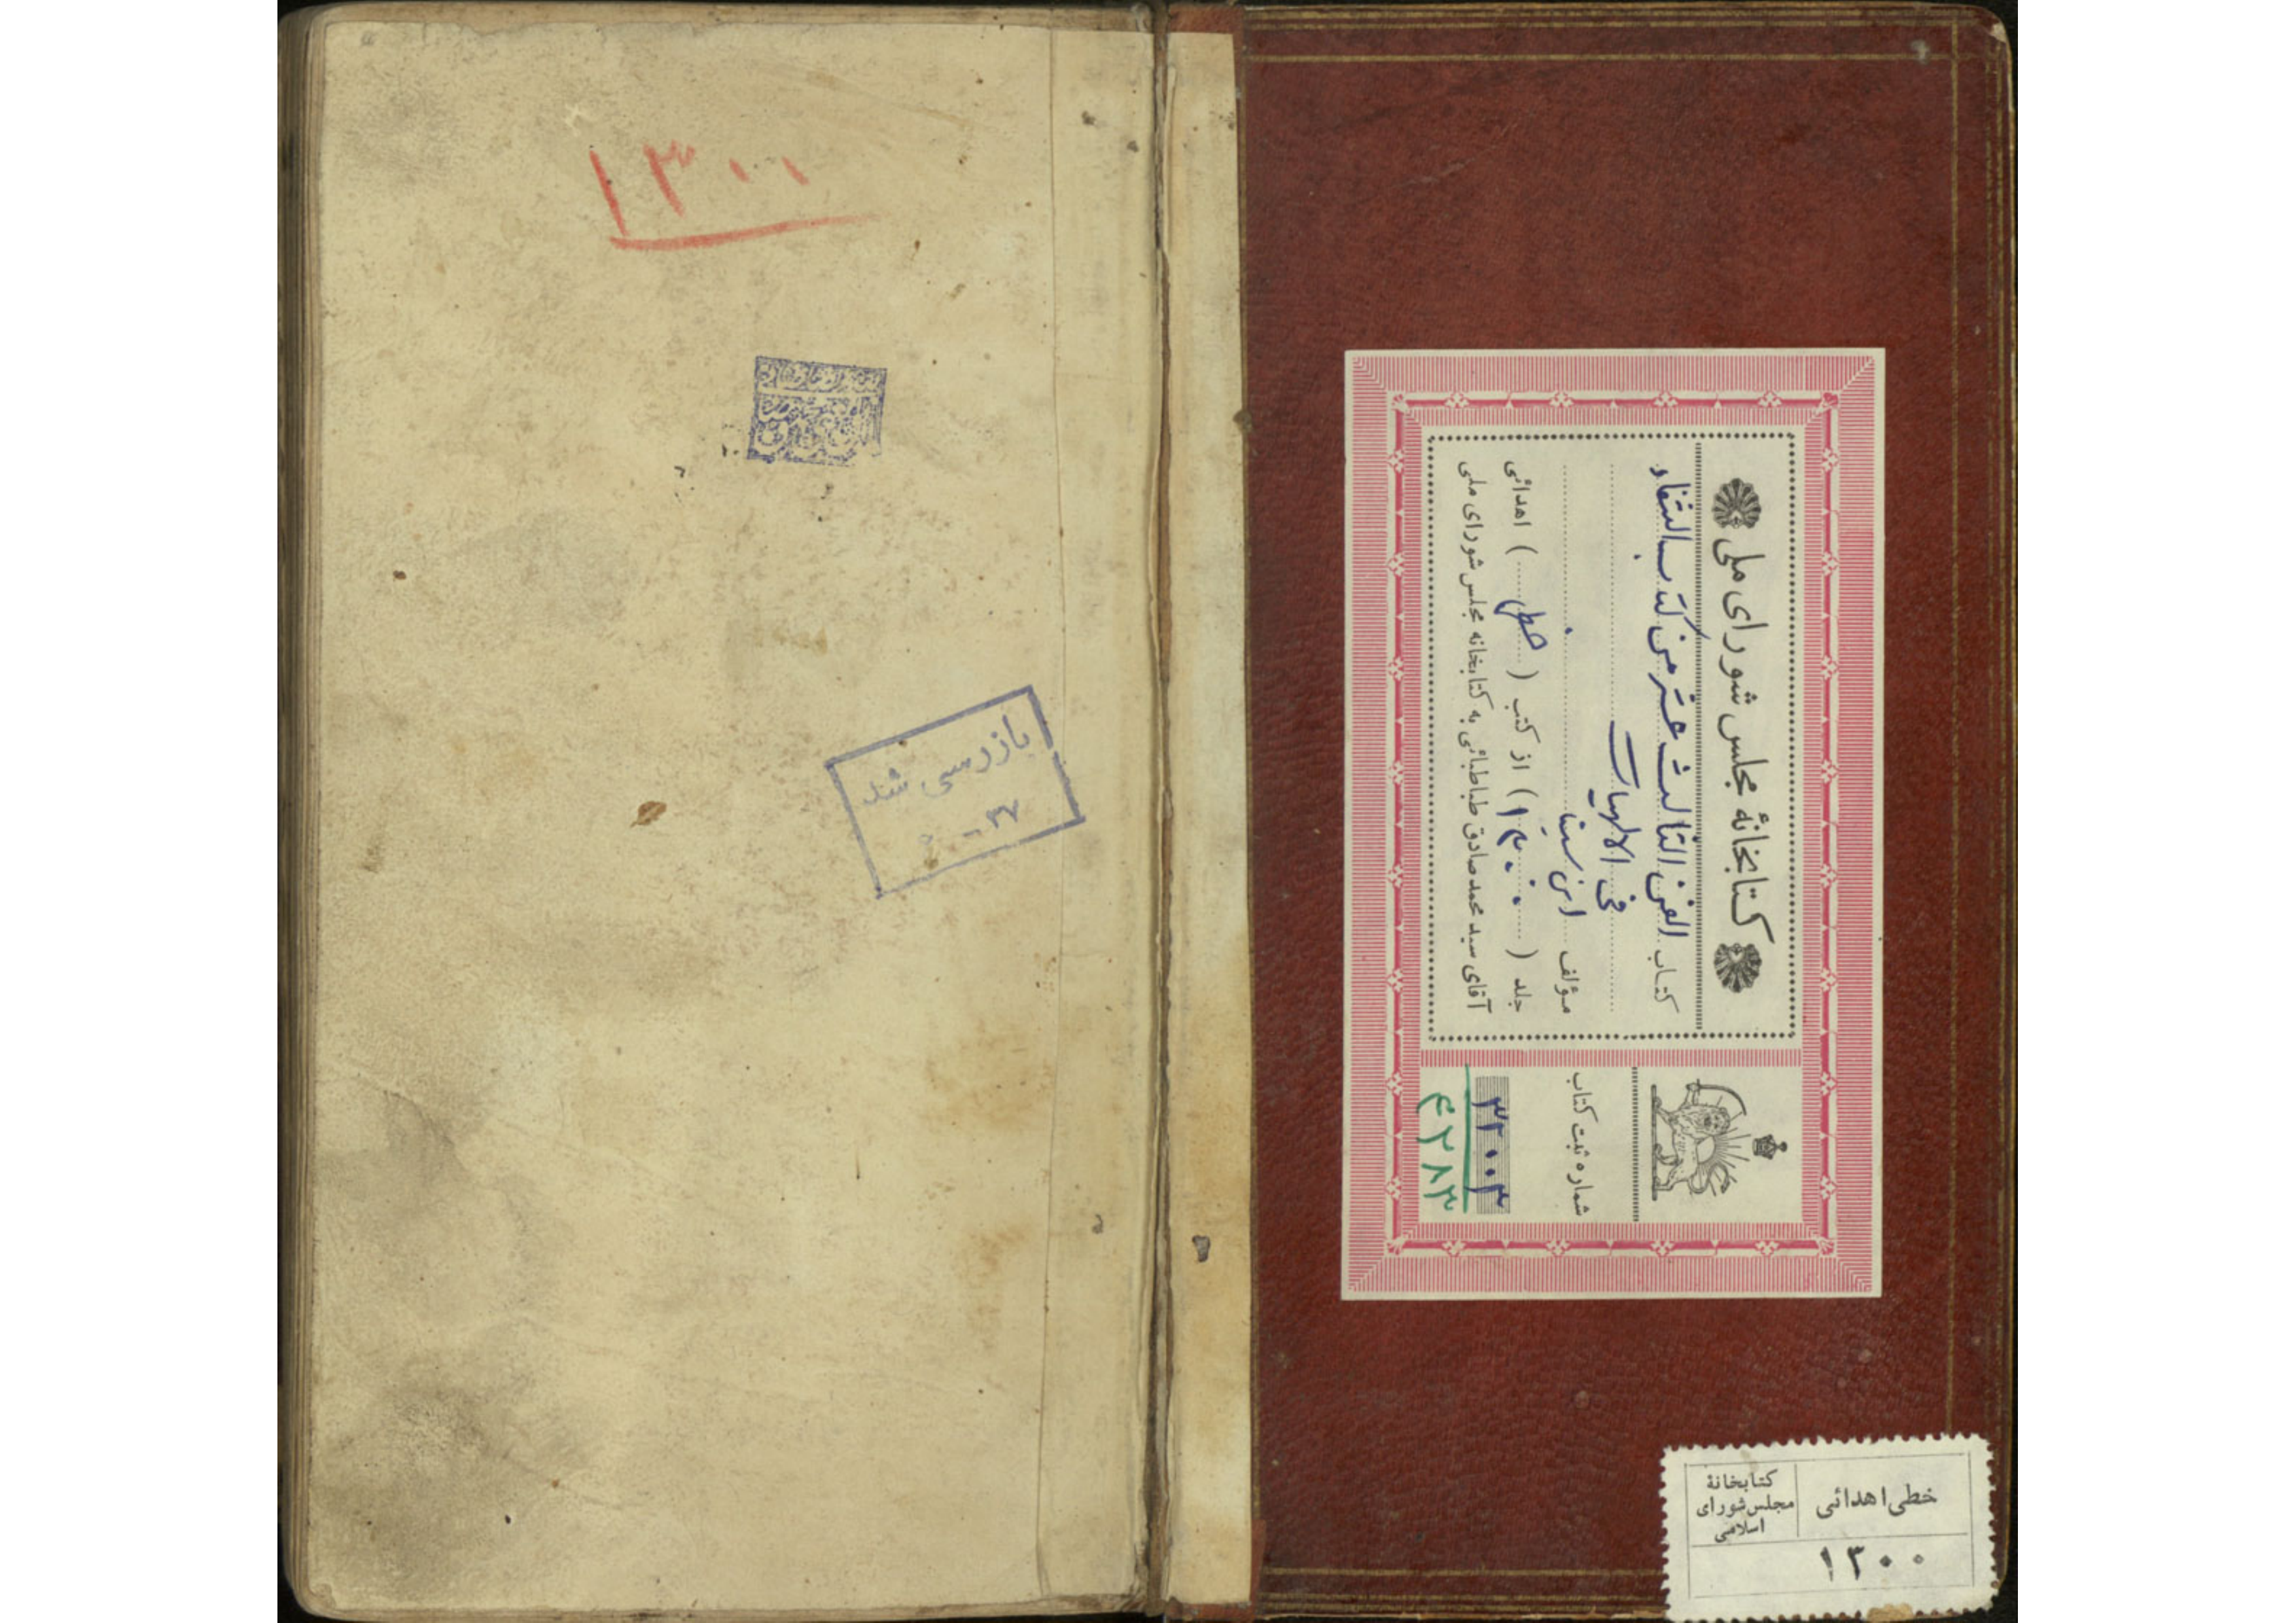 ۱۳۰۰
بازرسی شد
۳۷ -
کتابخانهٔ مجلس شورای ملی
کتاب الفن الثالث عشر من کتاب الشفاء
فی الالهیات
مؤلف ابن سینا
جلد (۱۳۰۰) از کتب (خطی) اهدائی
آقای سید محمد صادق طباطبائی به کتابخانه مجلس شورای ملی
شماره ثبت کتاب
۳۲۰۰۳
۴۲۸۳
خطی اهدائی
کتابخانهٔ
مجلس شورای
اسلامی
۱۳۰۰